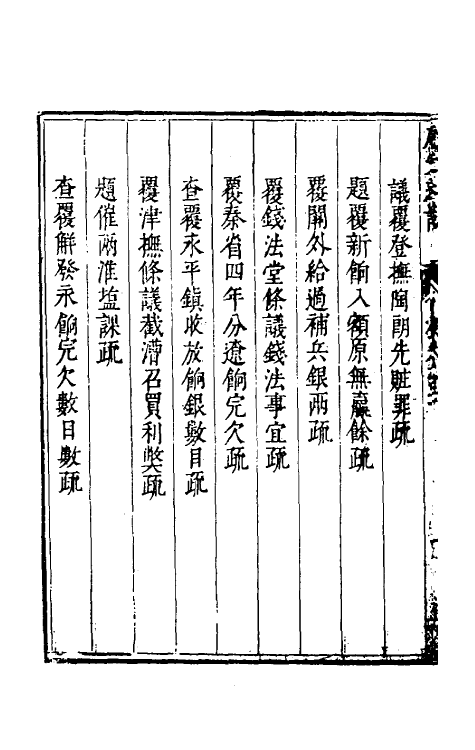 議覆登撫陶朗先贓罪疏
題覆新餉入額原無嬴餘疏
覆關外給過補兵銀兩疏
覆錢法堂條議錢法事宜疏
覆秦省四年分遼餉完欠疏
查覆永平鎮收放餉銀數目疏
覆津撫條議截漕召買利獘疏
題催兩淮塩課疏
查覆解發永餉完欠數目數疏